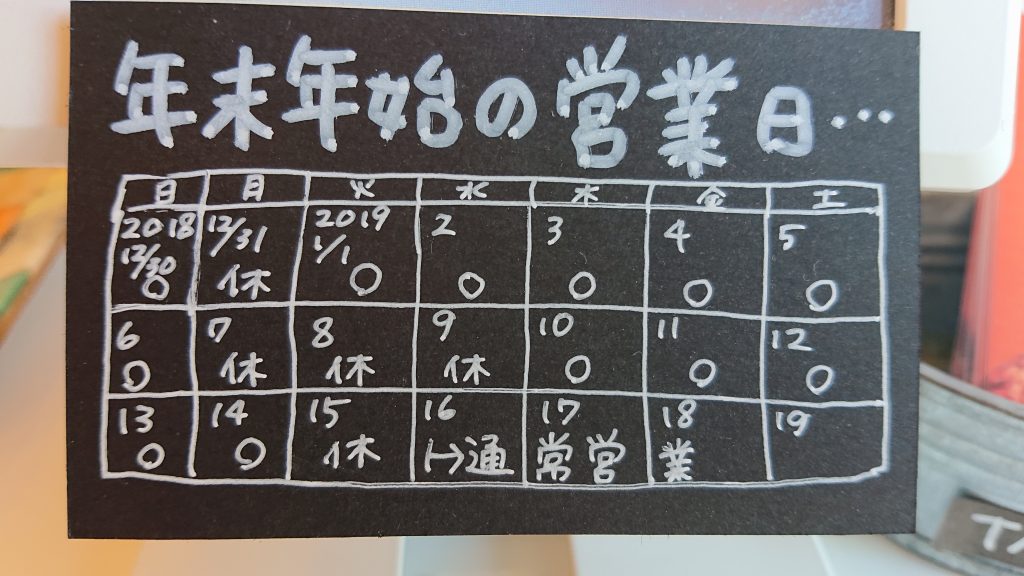 年末年始の営業日…
日 月 火 水 木 金 土
2018 12/31 2019 2 3 4 5
12/30 1/1
○ 休 ○ ○ ○ ○ ○
6 7 8 9 10 11 12
○ 休 休 休 ○ ○ ○
13 14 15 16 17 18 19
○ ○ 休 ↦通 常営 業